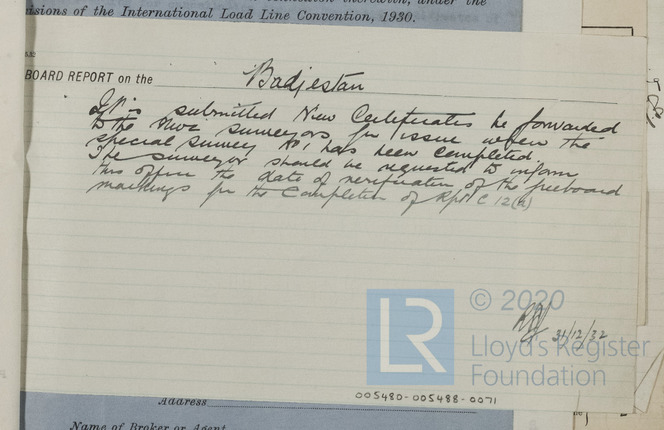 isions of the International Load Line Convention, 1930.
BOARD REPORT on the Badjestan
It is submitted New Certificates be forwarded
to the Nwc Surveyors for issue when the
Special Survey No 1 has been completed.
The Surveyor should be requested to inform
this office the date of verification of the freeboard
markings for the Completion of Rpt C 12(a)
31/12/32
LR
© 2020
Lloyd's Register
Foundation
005480-005488-0071
Address
Name of Broker or Agent